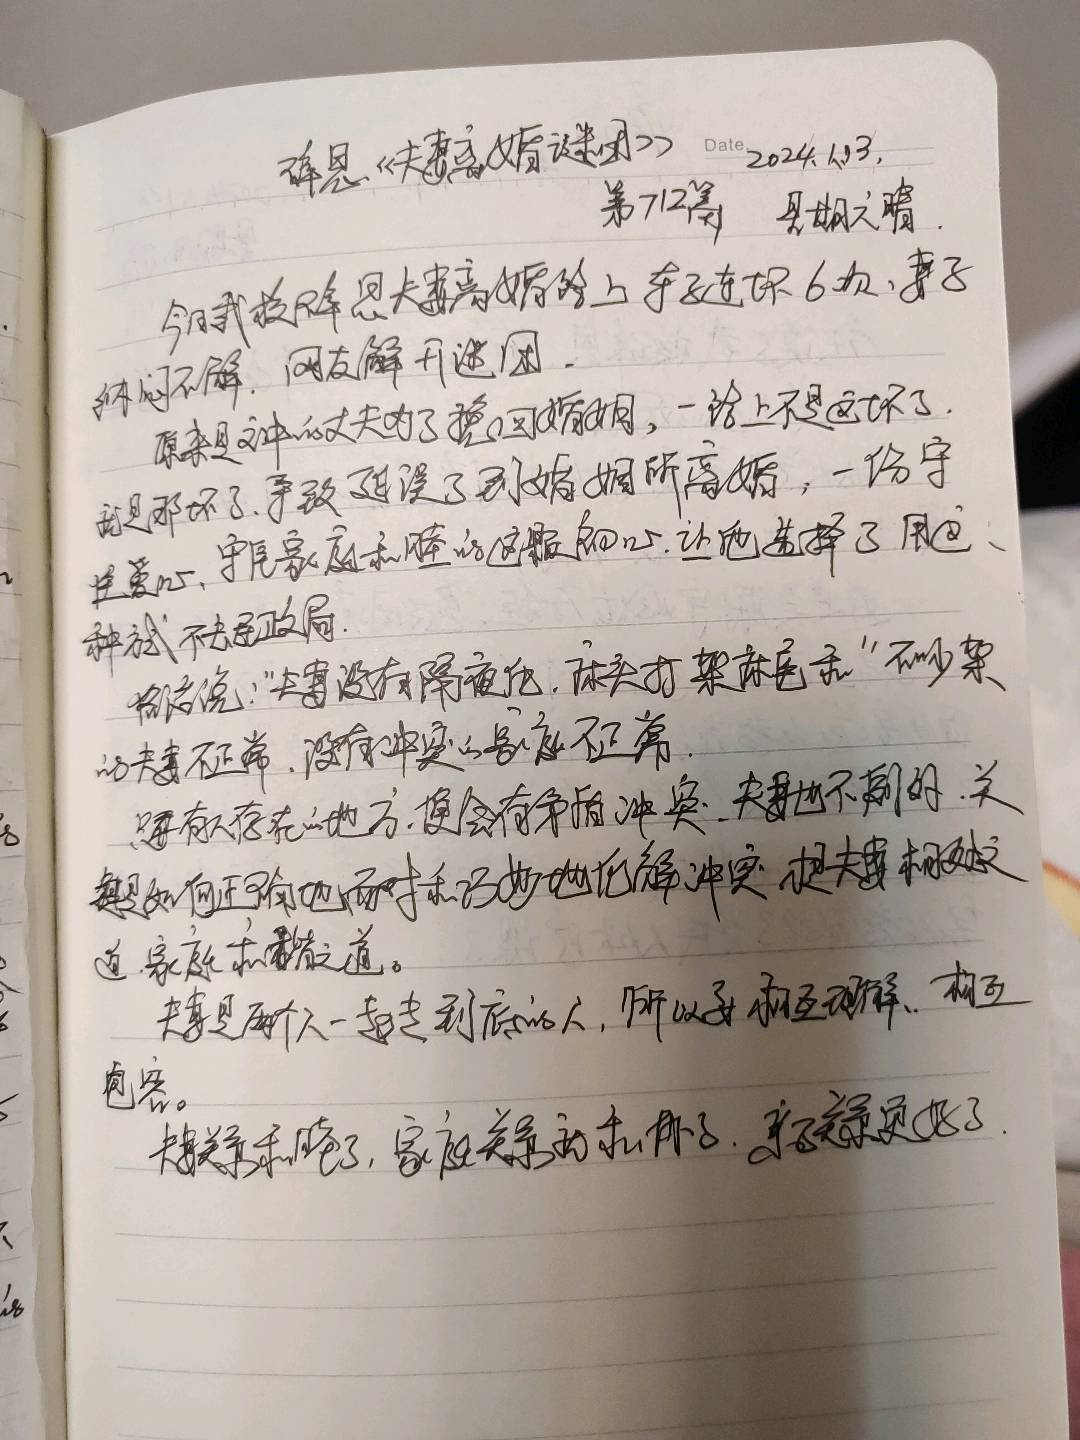 降恩《夫妻离婚谜团》 Date 2024.1.13.
第712篇 星期六晴.
今日我按降恩夫妻离婚路上车子连坏6次,妻子
纳闷不解.网友解开谜团.
原来是文中的丈夫为了挽回婚姻,一路上不是这坏了.
就是那坏了.导致延误了到婚姻所离婚,一份守
住爱心,守住家庭和睦的这股初心.让他选择了用这、
种方式不去民政局.
俗话说:"夫妻没有隔夜仇.床头打架床尾和"不吵架
的夫妻不正常.没有冲突的家庭不正常.
只要有人存在的地方.便会有矛盾冲突.夫妻也不例外.关
键是如何正确地面对和巧妙地化解冲突.是夫妻相处之
道.家庭和谐之道。
夫妻是两个人一起走到底的人,所以要相互理解、相互
包容。
夫妻关系和睦了,家庭关系就和睦了.亲子关系更好了.